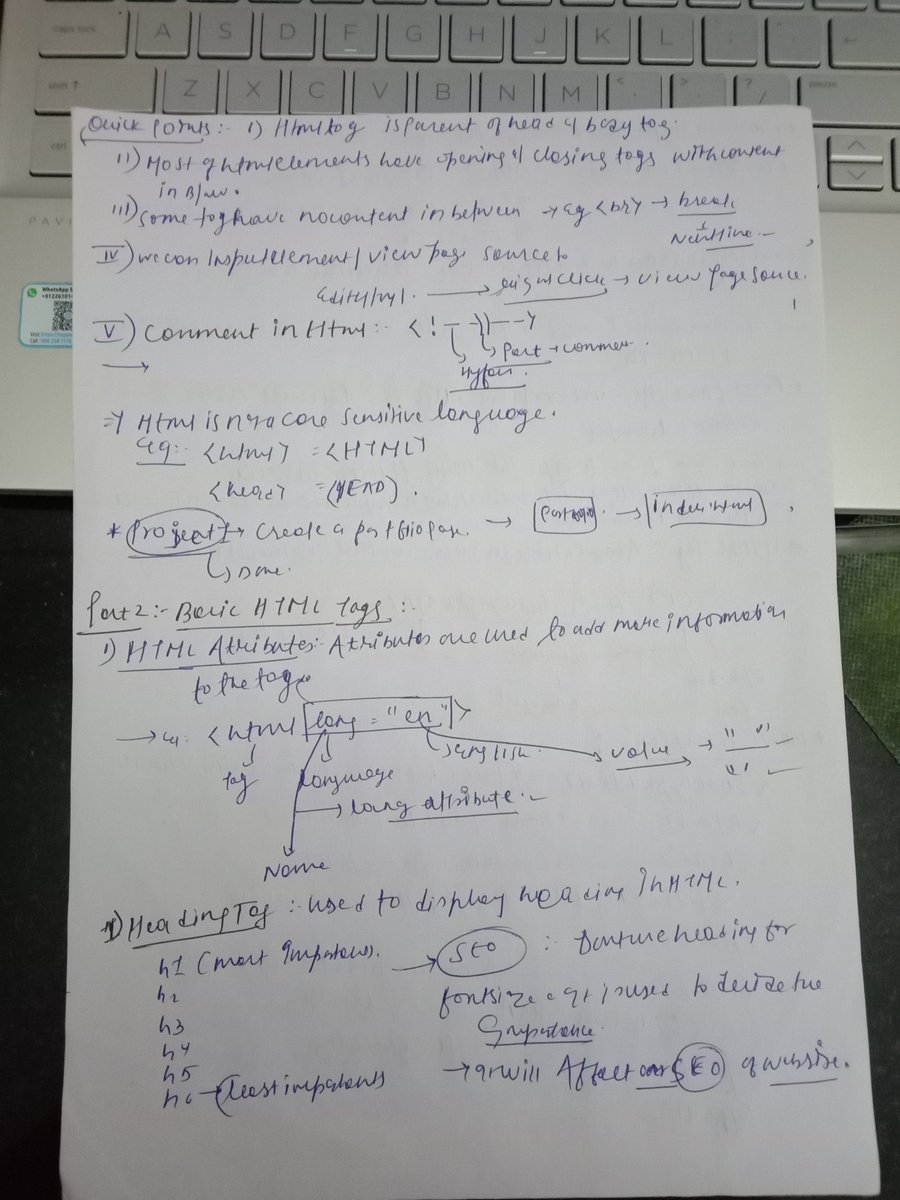 caps lock A S D F G H J K L : " ←
shift ↑ Z X C V B N M < > ? / pause
ctrl
PAVI
WhatsApp
Quick Points:- I) Html tag is parent of head & body tag.
II) Most of html elements have opening & closing tags with content
in B/w.
III) Some tag have no content in between → eg <br> → break
Next line
IV) we can Inspect element / view page source to
edit html. → right click → view page source.
V) Comment in Html:- <! -- -->
→ Part → comment.
Hyfen.
=> Html is not a case sensitive language.
eg:- <html> = <HTML>
<head> = <HEAD>.
* Project → Create a portfolio page. → Portfolio → index.html
Done.
Part 2:- Basic HTML Tags :-
I) HTML Attributes:- Attributes are used to add more information
to the tag.
→ eg: <html lang = "en">
tag Language English. value → " "
' '
→ lang attribute.
Name
II) Heading Tag :- used to display heading in HTML.
h1 (most Important). → SEO :- Don't use heading for
h2 fontsize
h3 used to decide the
h4 Importance.
h5 → It will Affect our SEO of website.
h6 → (least important)